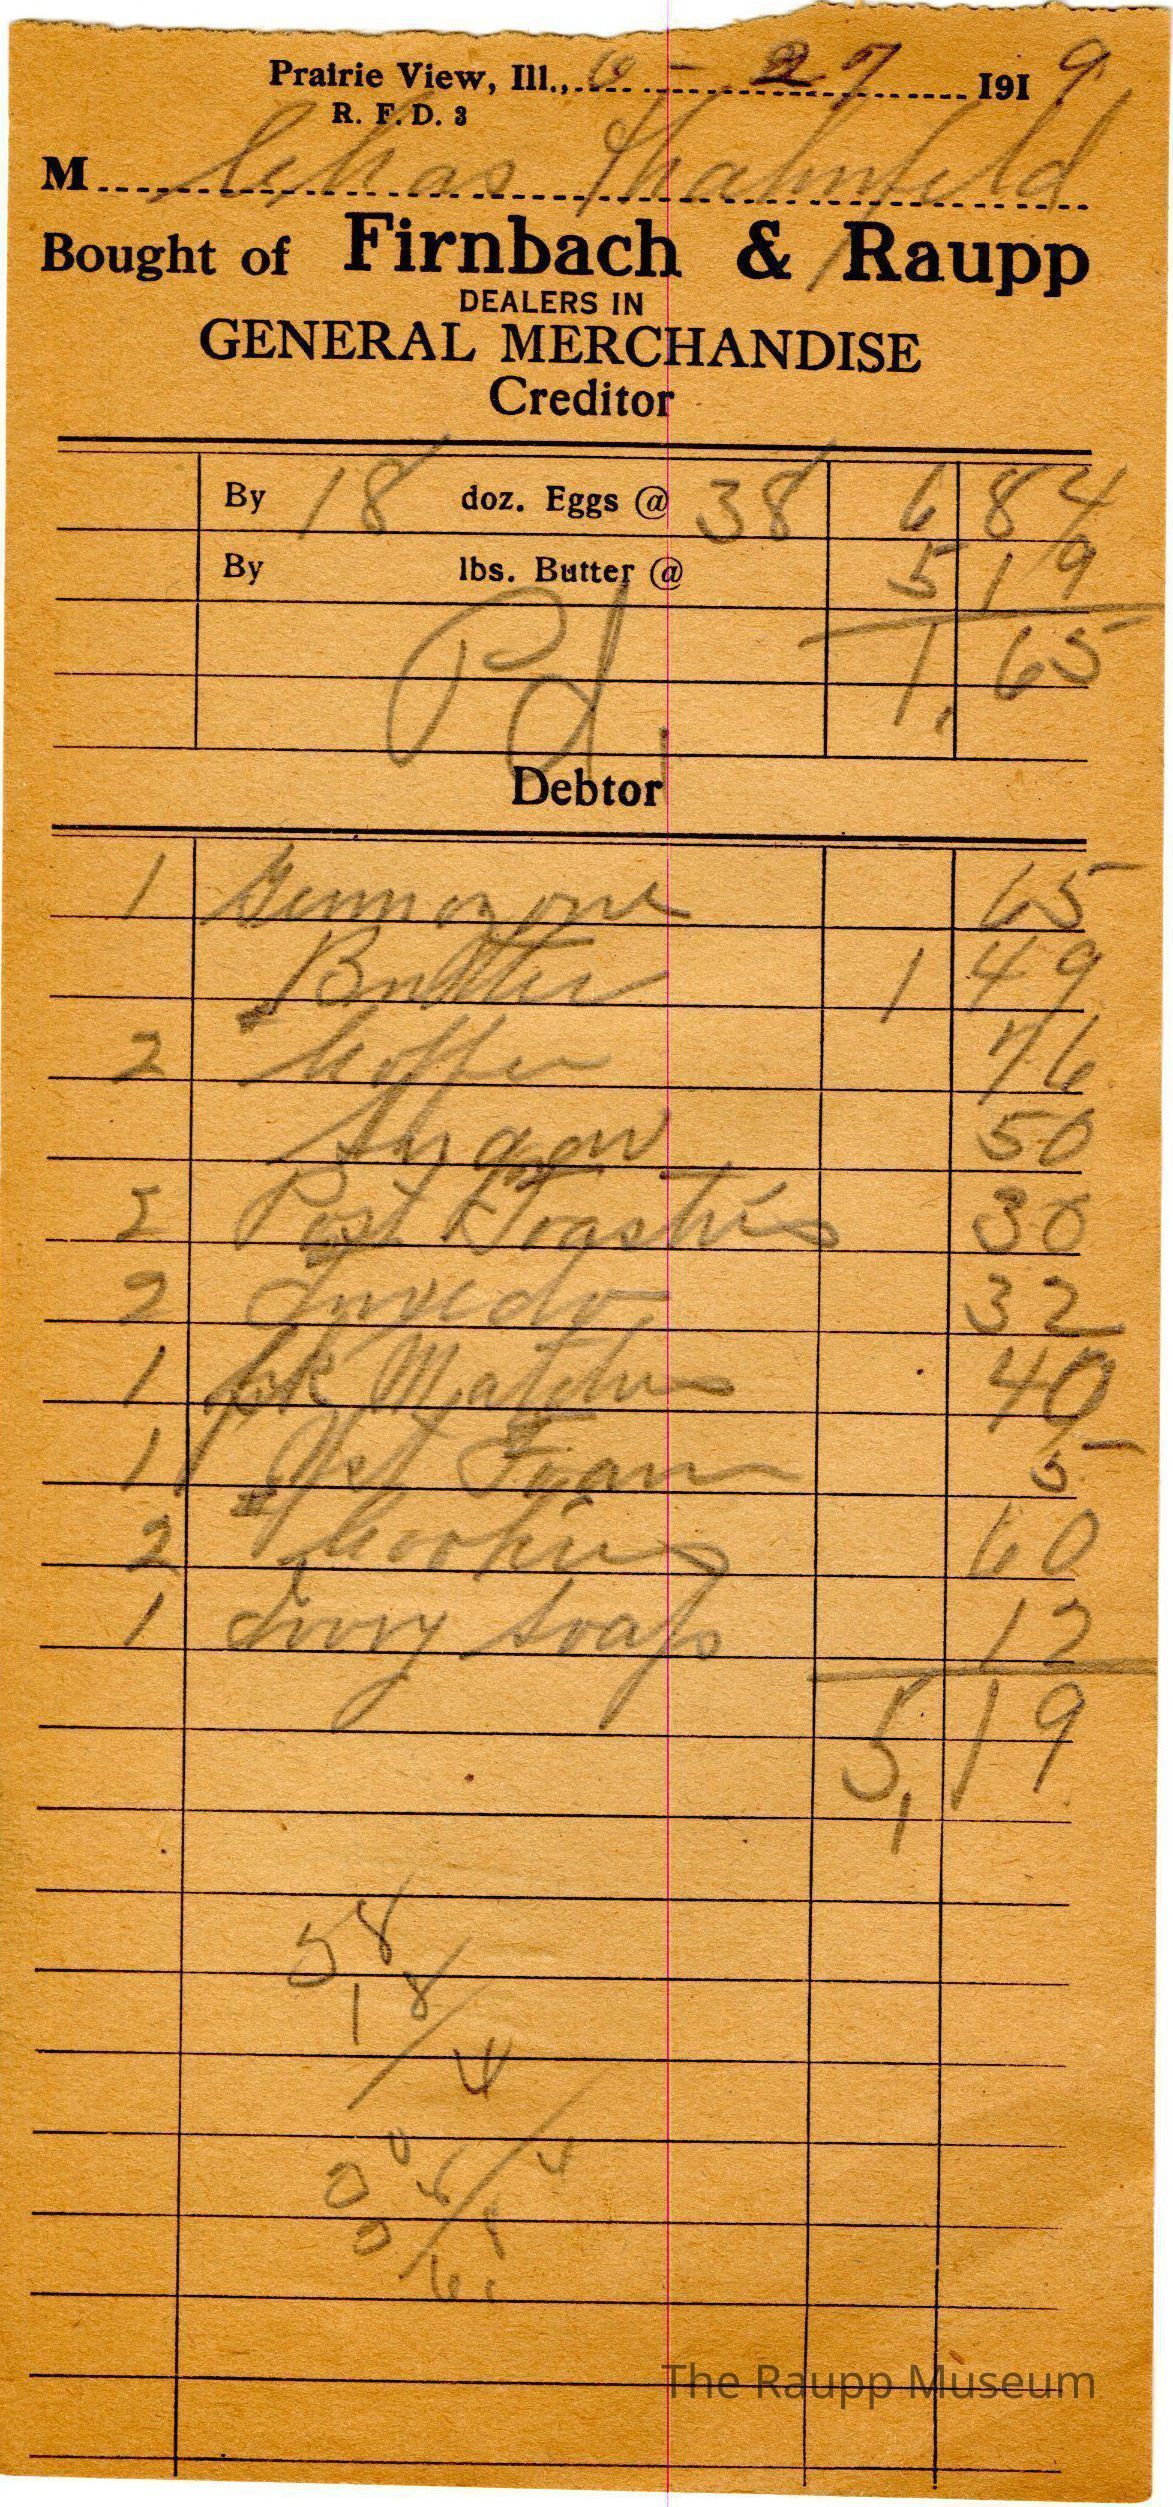 Prairie View, Ill., 6 - 27 1919
R. F. D. 3
M Chas
Bought of Firnbach & Raupp
DEALERS IN
GENERAL MERCHANDISE
Creditor
By 18 doz. Eggs @ 38 6 84
By lbs. Butter @ 5 19
1, 65
Pd.
Debtor
1 65
Butter 1 49
2 Coffee 76
Sugar 50
2 Post Toasties 30
2 32
1 pk Matches 40
1 Yst Foam 5
2 Cookies 60
1 Ivory Soap 12
5, 19
58
18
4
The Raupp Museum